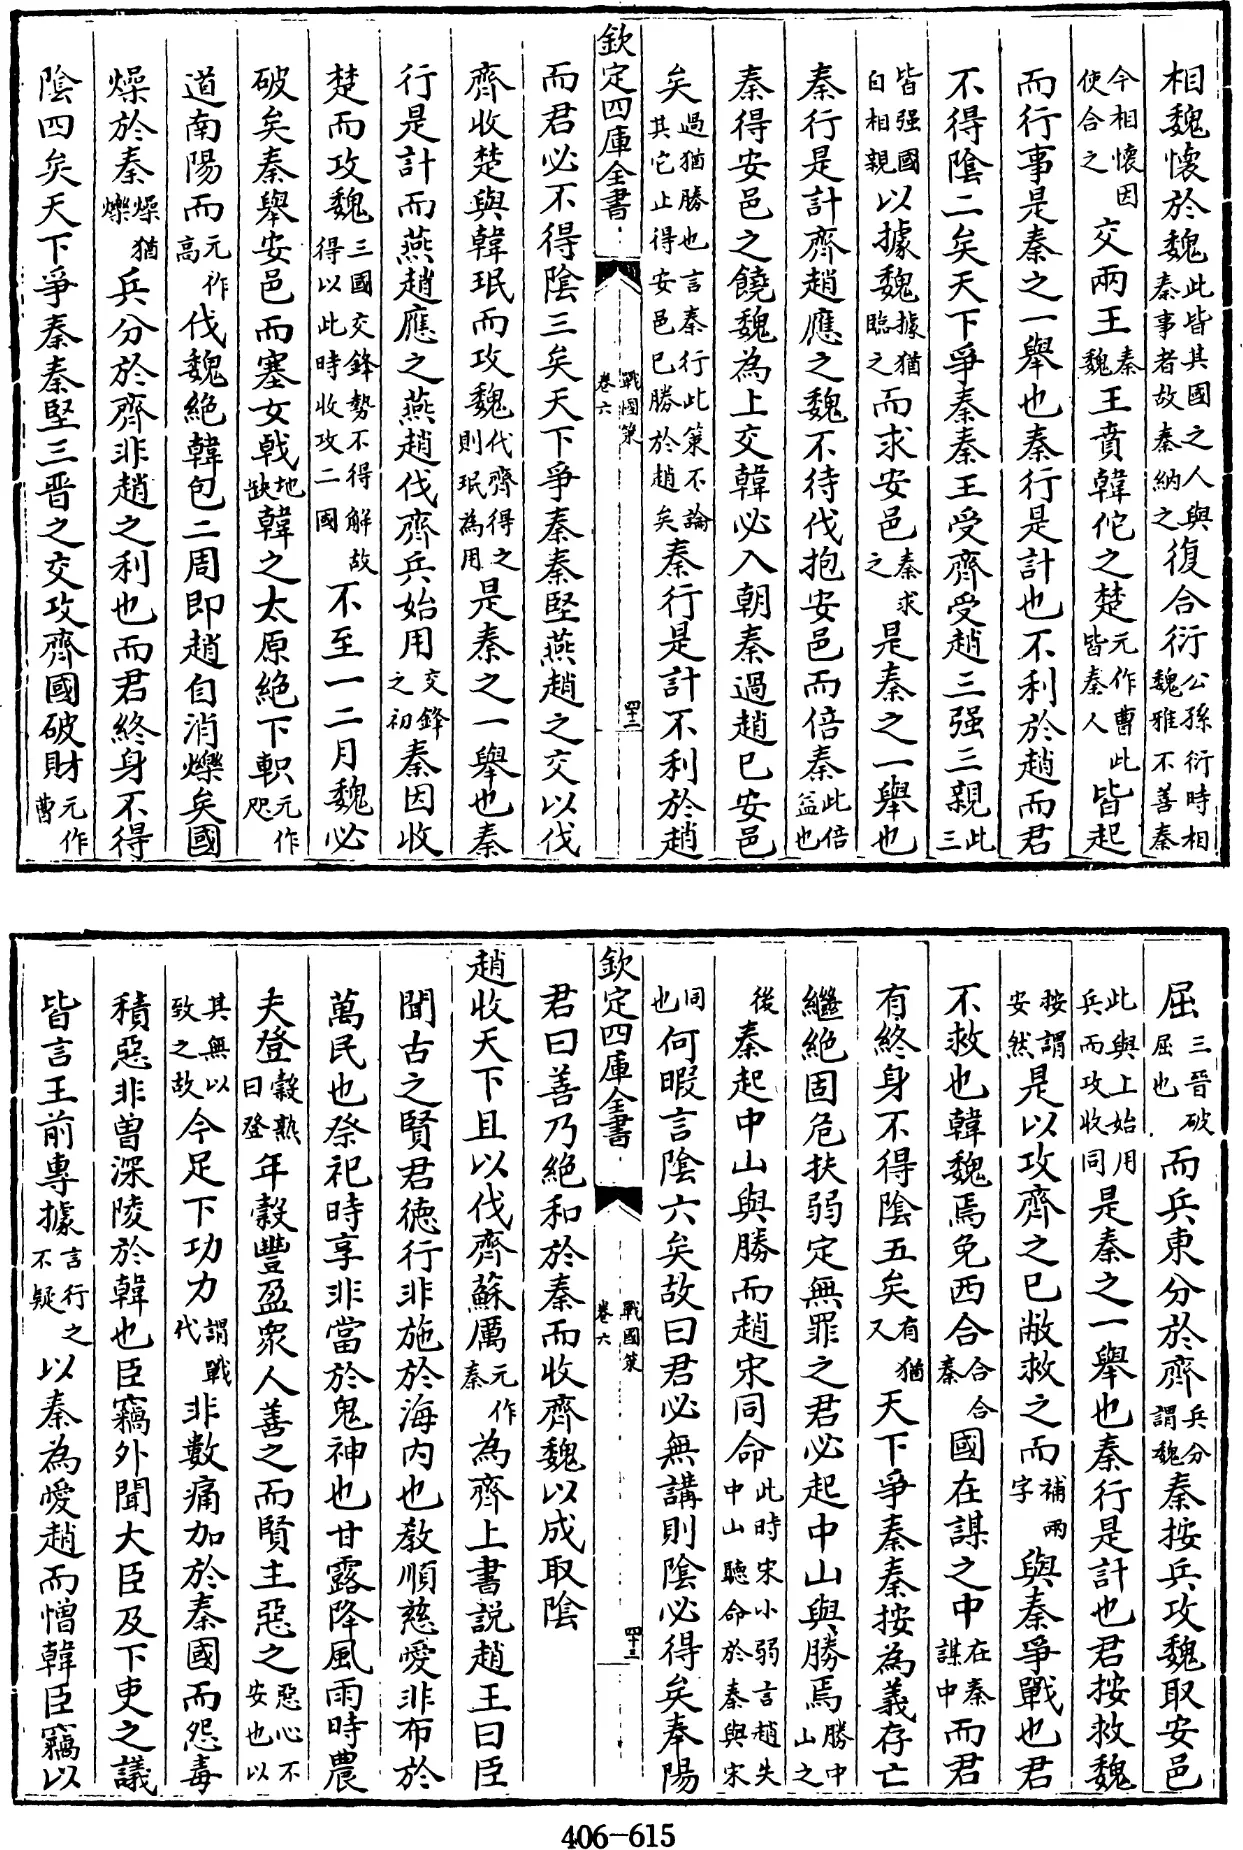 相魏懷於魏此皆其國之人與秦事者故秦納之復合衍公孫衍時相魏雅不善秦
今相懷因使合之交兩王秦魏王賁韓佗之楚元作曹此皆秦人皆起
而行事是秦之一舉也秦行是計也不利於趙而君
不得陰二矣天下爭秦秦王受齊受趙三强三親此三
皆强國自相親以據魏據猶臨之而求安邑秦求之是秦之一舉也
秦行是計齊趙應之魏不待伐抱安邑而倍秦此倍益也
秦得安邑之饒魏為上交韓必入朝秦過趙已安邑
矣過猶勝也言秦行此策不論其它止得安邑已勝於趙矣秦行是計不利於趙
欽定四庫全書 戰國策卷六 四十二
而君必不得陰三矣天下爭秦秦堅燕趙之交以伐
齊收楚與韓珉而攻魏代齊得之則珉為用是秦之一舉也秦
行是計而燕趙應之燕趙伐齊兵始用交鋒之初秦因收
楚而攻魏三國交鋒勢不得解故得以此時收攻二國不至一二月魏必
破矣秦舉安邑而塞女戟地缺韓之太原絕下軹元作咫
道南陽而元作高伐魏絕韓包二周即趙自消爍矣國
燥於秦燥猶爍兵分於齊非趙之利也而君終身不得
陰四矣天下爭秦秦堅三晉之交攻齊國破財元作曹
屈三晉破屈也而兵東分於齊兵分謂魏秦按兵攻魏取安邑
此與上始用兵而攻收同是秦之一舉也秦行是計也君按救魏
按謂安然是以攻齊之已敝救之而補兩字與秦爭戰也君
不救也韓魏焉免西合合秦合國在謀之中在秦謀中而君
有終身不得陰五矣有猶又天下爭秦秦按為義存亡
繼絕固危扶弱定無罪之君必起中山與勝焉勝中山之
後秦起中山與勝而趙宋同命此時宋小弱言趙失中山聽命於秦與宋
同也何暇言陰六矣故曰君必無講則陰必得矣奉陽
欽定四庫全書 戰國策卷六 四十三
君曰善乃絕和於秦而收齊魏以成取陰
趙收天下且以伐齊蘇厲元作秦為齊上書説趙王曰臣
聞古之賢君德行非施於海内也敎順慈愛非布於
萬民也祭祀時享非當於鬼神也甘露降風雨時農
夫登穀熟曰登年穀豐盈衆人善之而賢主惡之惡心不安也以
其無以致之故今足下功力謂戰代非數痛加於秦國而怨毒
積惡非曾深陵於韓也臣竊外聞大臣及下吏之議
皆言王前專據言行之不疑以秦為愛趙而憎韓臣竊以
406-615